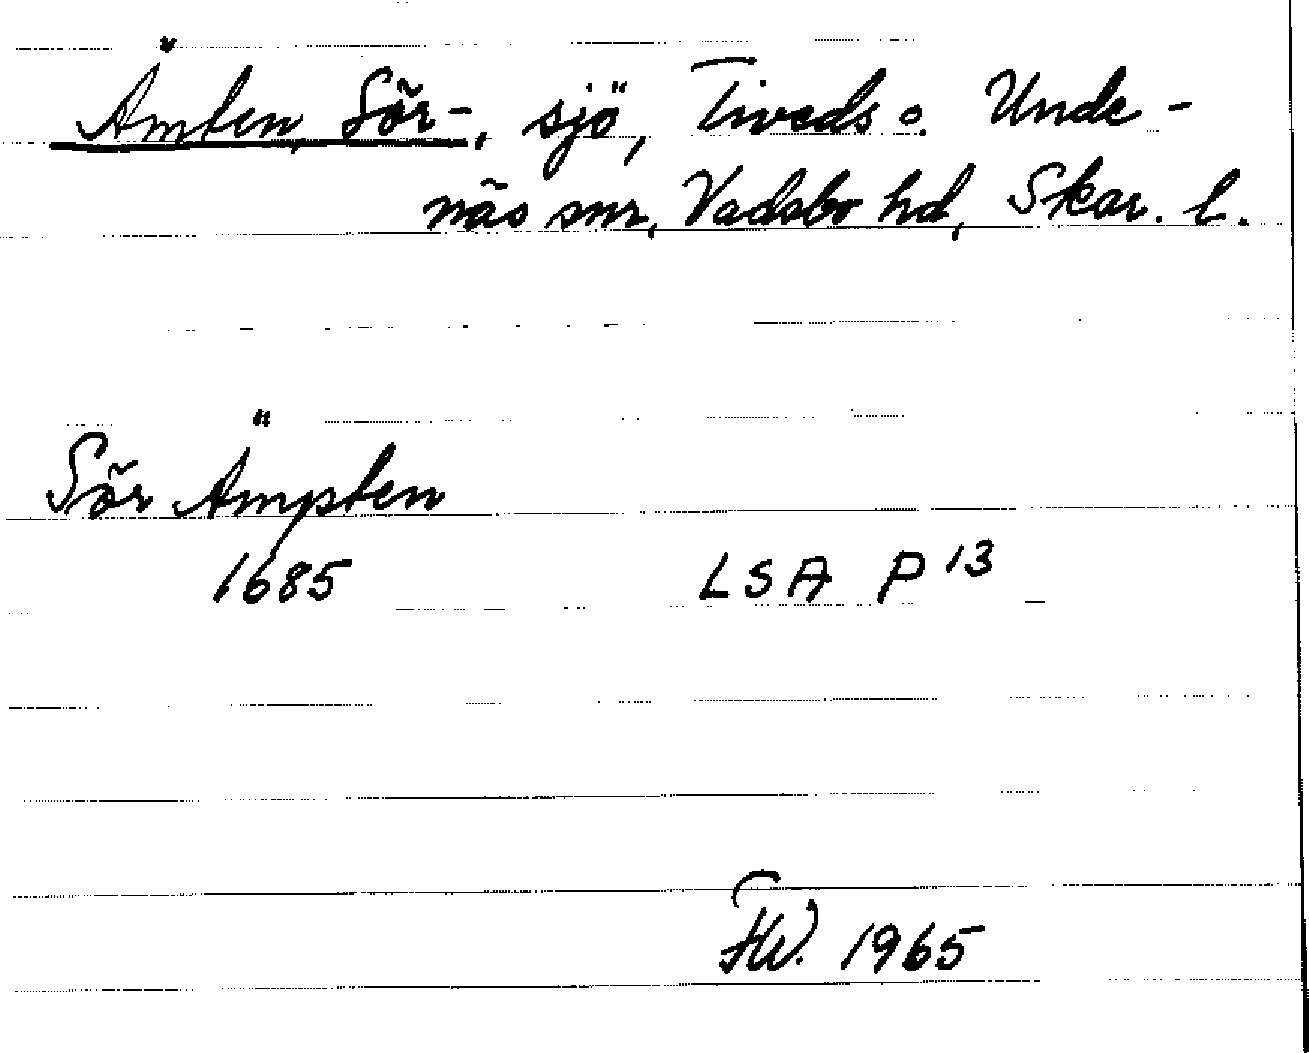 Ämten, Sör-, sjö, Tiveds o. Unde-
näs snr, Vadsbo hd, Skar. l.
Sör Ämpten
1685 LSA P 13
FW. 1965